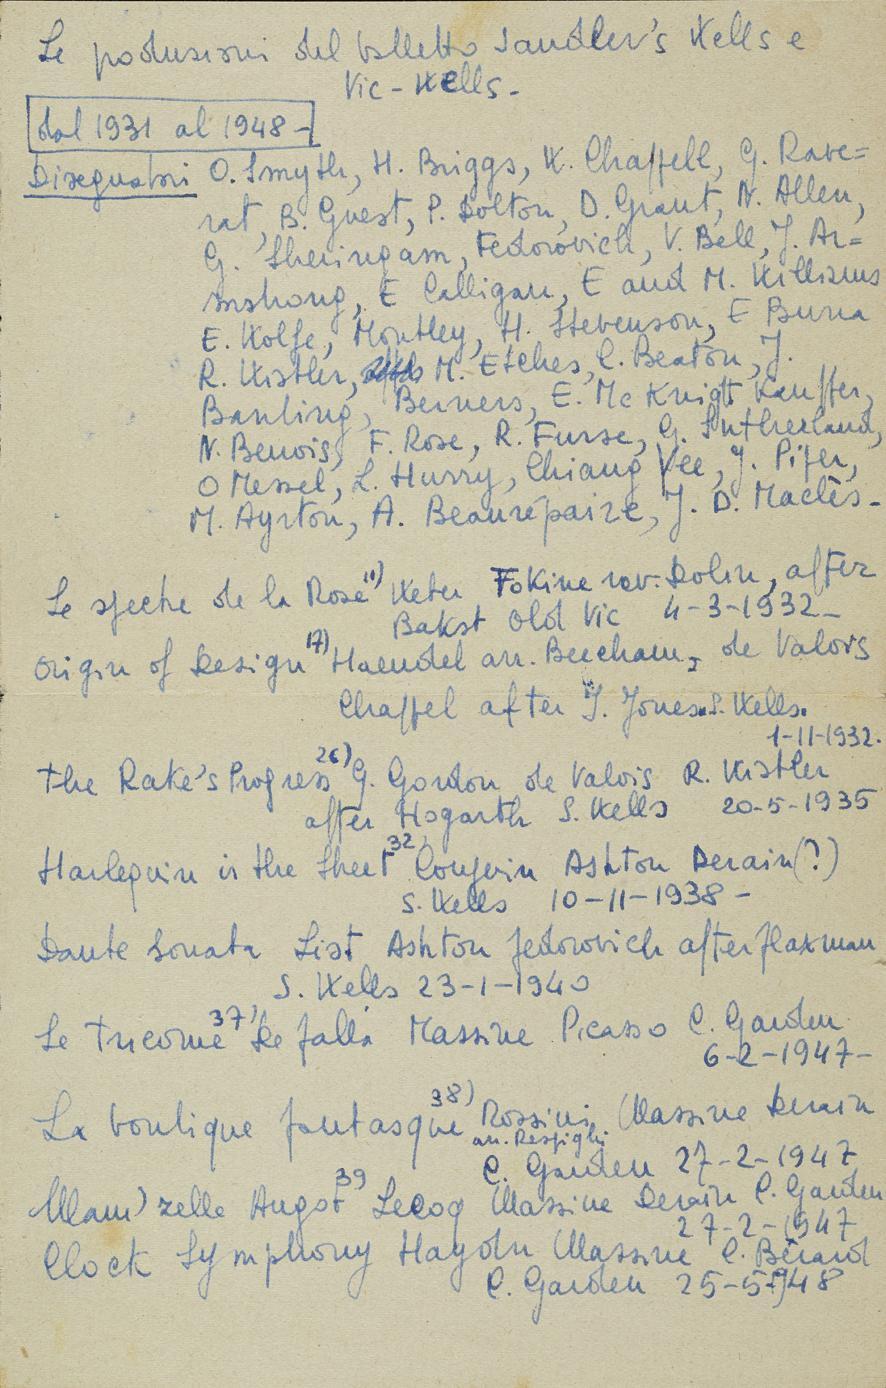 Le produzioni del balletto Sandler's Wells e
Vic-Wells-
dal 1931 al 1948-
Disegnatori O. Smyth, H. Briggs, W. Chaffell, G. Rave=
rat, B. Guest, P. Dolton, D. Grant, N. Allen,
G. Sheringam, Fedorovich, V. Bell, J. Ar=
mshong, E Calligan, E and M. Williams
E. Wolfe, Montley, H. Stevenson, E Burra
R. Wistler, M. Etches, C. Beaton, J.
Banting, Berners, E. Mc Knigtt Kauffer,
N. Benois, F. Rose, R. Furse, G. Sutherland,
O Messel, L. Hurry, Chiang Yee, J. Pifer,
M. Ayrton, A. Beaurepaire, J. D. Maclès-
Le spectre de la Rose 11) Weber Fokine rev. Dolin, after
Bakst Old Vic 4-3-1932-
Origin of Design 17) Haendel arr. Beecham, de Valois
Chaffel after I. Jones. S. Wells.
1-11-1932.
The Rake's Progress 26) G. Gordon de Valois R. Wistler
after Hogarth S. Wells 20-5-1935
Harlequin in the Street 32) Couperin Ashton Derain (?)
S. Wells 10-11-1938-
Dante Sonata List Ashton Fedorovich after flaxman
S. Wells 23-1-1940
Le Tricorne 37) De falla Massine Picasso C. Garden
6-2-1947-
La boutique fantasque 38) Rossini Massine Derain
arr. Respighi
C. Garden 27-2-1947
Mam)zelle Angot 39) Lecoq Massine Derain C. Garden
27-2-1947
Clock Symphony Haydn Massine C. Bérard
C. Garden 25-5-948